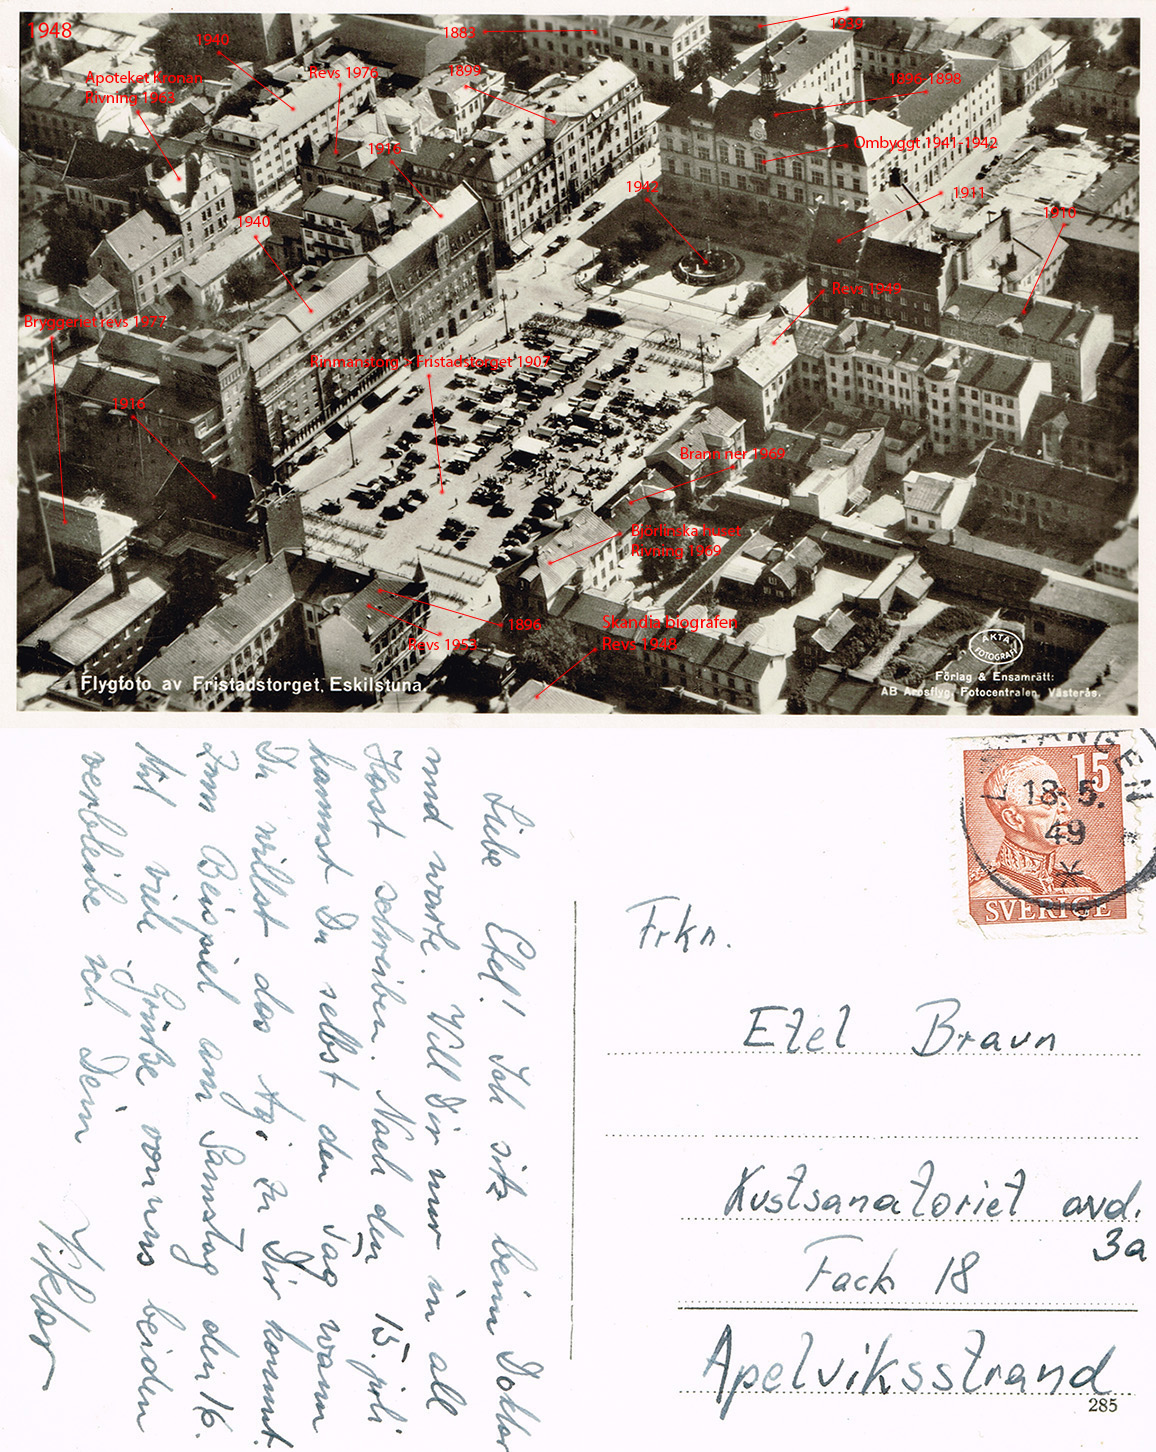 1948
1940
Apoteket Kronan
Rivning 1963
Revs 1976
1883
1899
1939
1896-1898
Ombyggt 1941-1942
1916
1942
1911
1910
1940
Revs 1949
Bryggeriet revs 1977
Rinmanstorg > Fristadstorget 1907
1916
Brann ner 1969
Björlinska huset
Rivning 1969
1896
Revs 1953
Skandia biografen
Revs 1948
Flygfoto av Fristadstorget, Eskilstuna.
AKTA
FOTOGRAFI
Förlag & Ensamrätt:
AB Arosflyg, Fotocentralen, Västerås.
Liebe Etel! Ich sitz beim Doktor
und warte. Will Dir nur in all
Hast schreiben. Nach den 15. juli
kannst Du selbst den Tag wann
Du willst das Agi zu Dir kommt.
Zum Beispiel am Samstag den 16.
Mit viele Grüße von uns beiden
verbleibe ich Dein
Viktor
15
18. 5.
49
SVERIGE
Frkn.
Etel Braun
Kustsanatoriet avd.
3a
Fack 18
Apelviksstrand
285